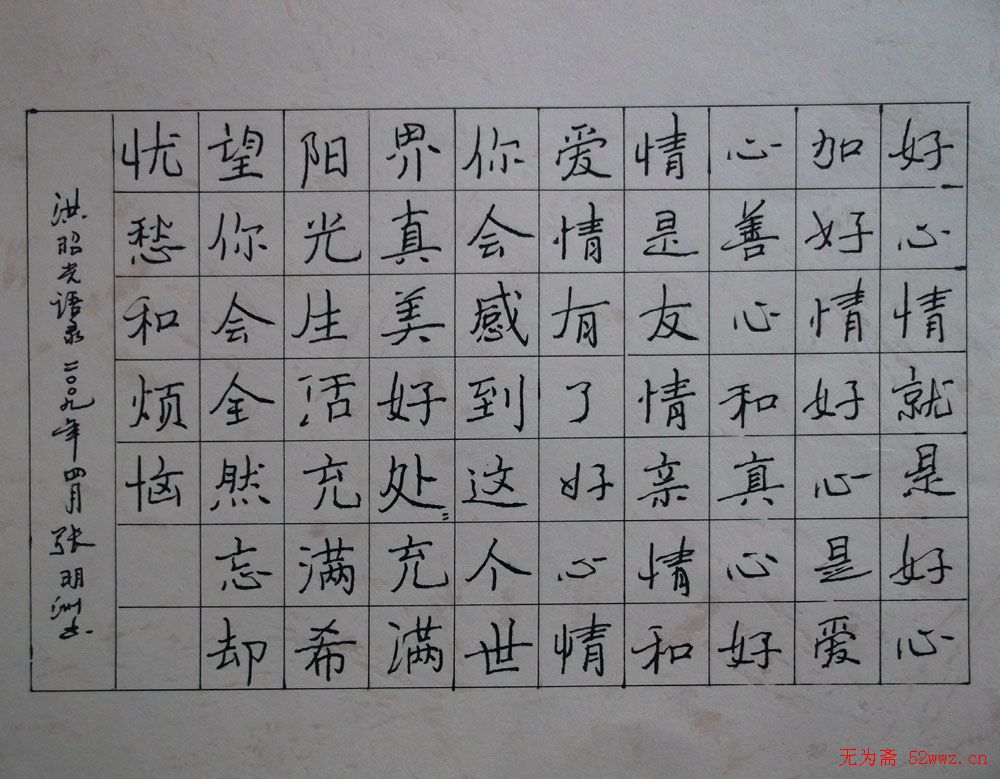 好心情就是好心
加好情好心是爱
心善心和真心好
情是友情亲情和
爱情有了好心情
你会感到这个世
界真美好处〻充满
阳光生活充满希
望你会全然忘却
忧愁和烦恼
洪昭光语录二〇〇九年四月张明洲书
无为斋 52wwz.cn